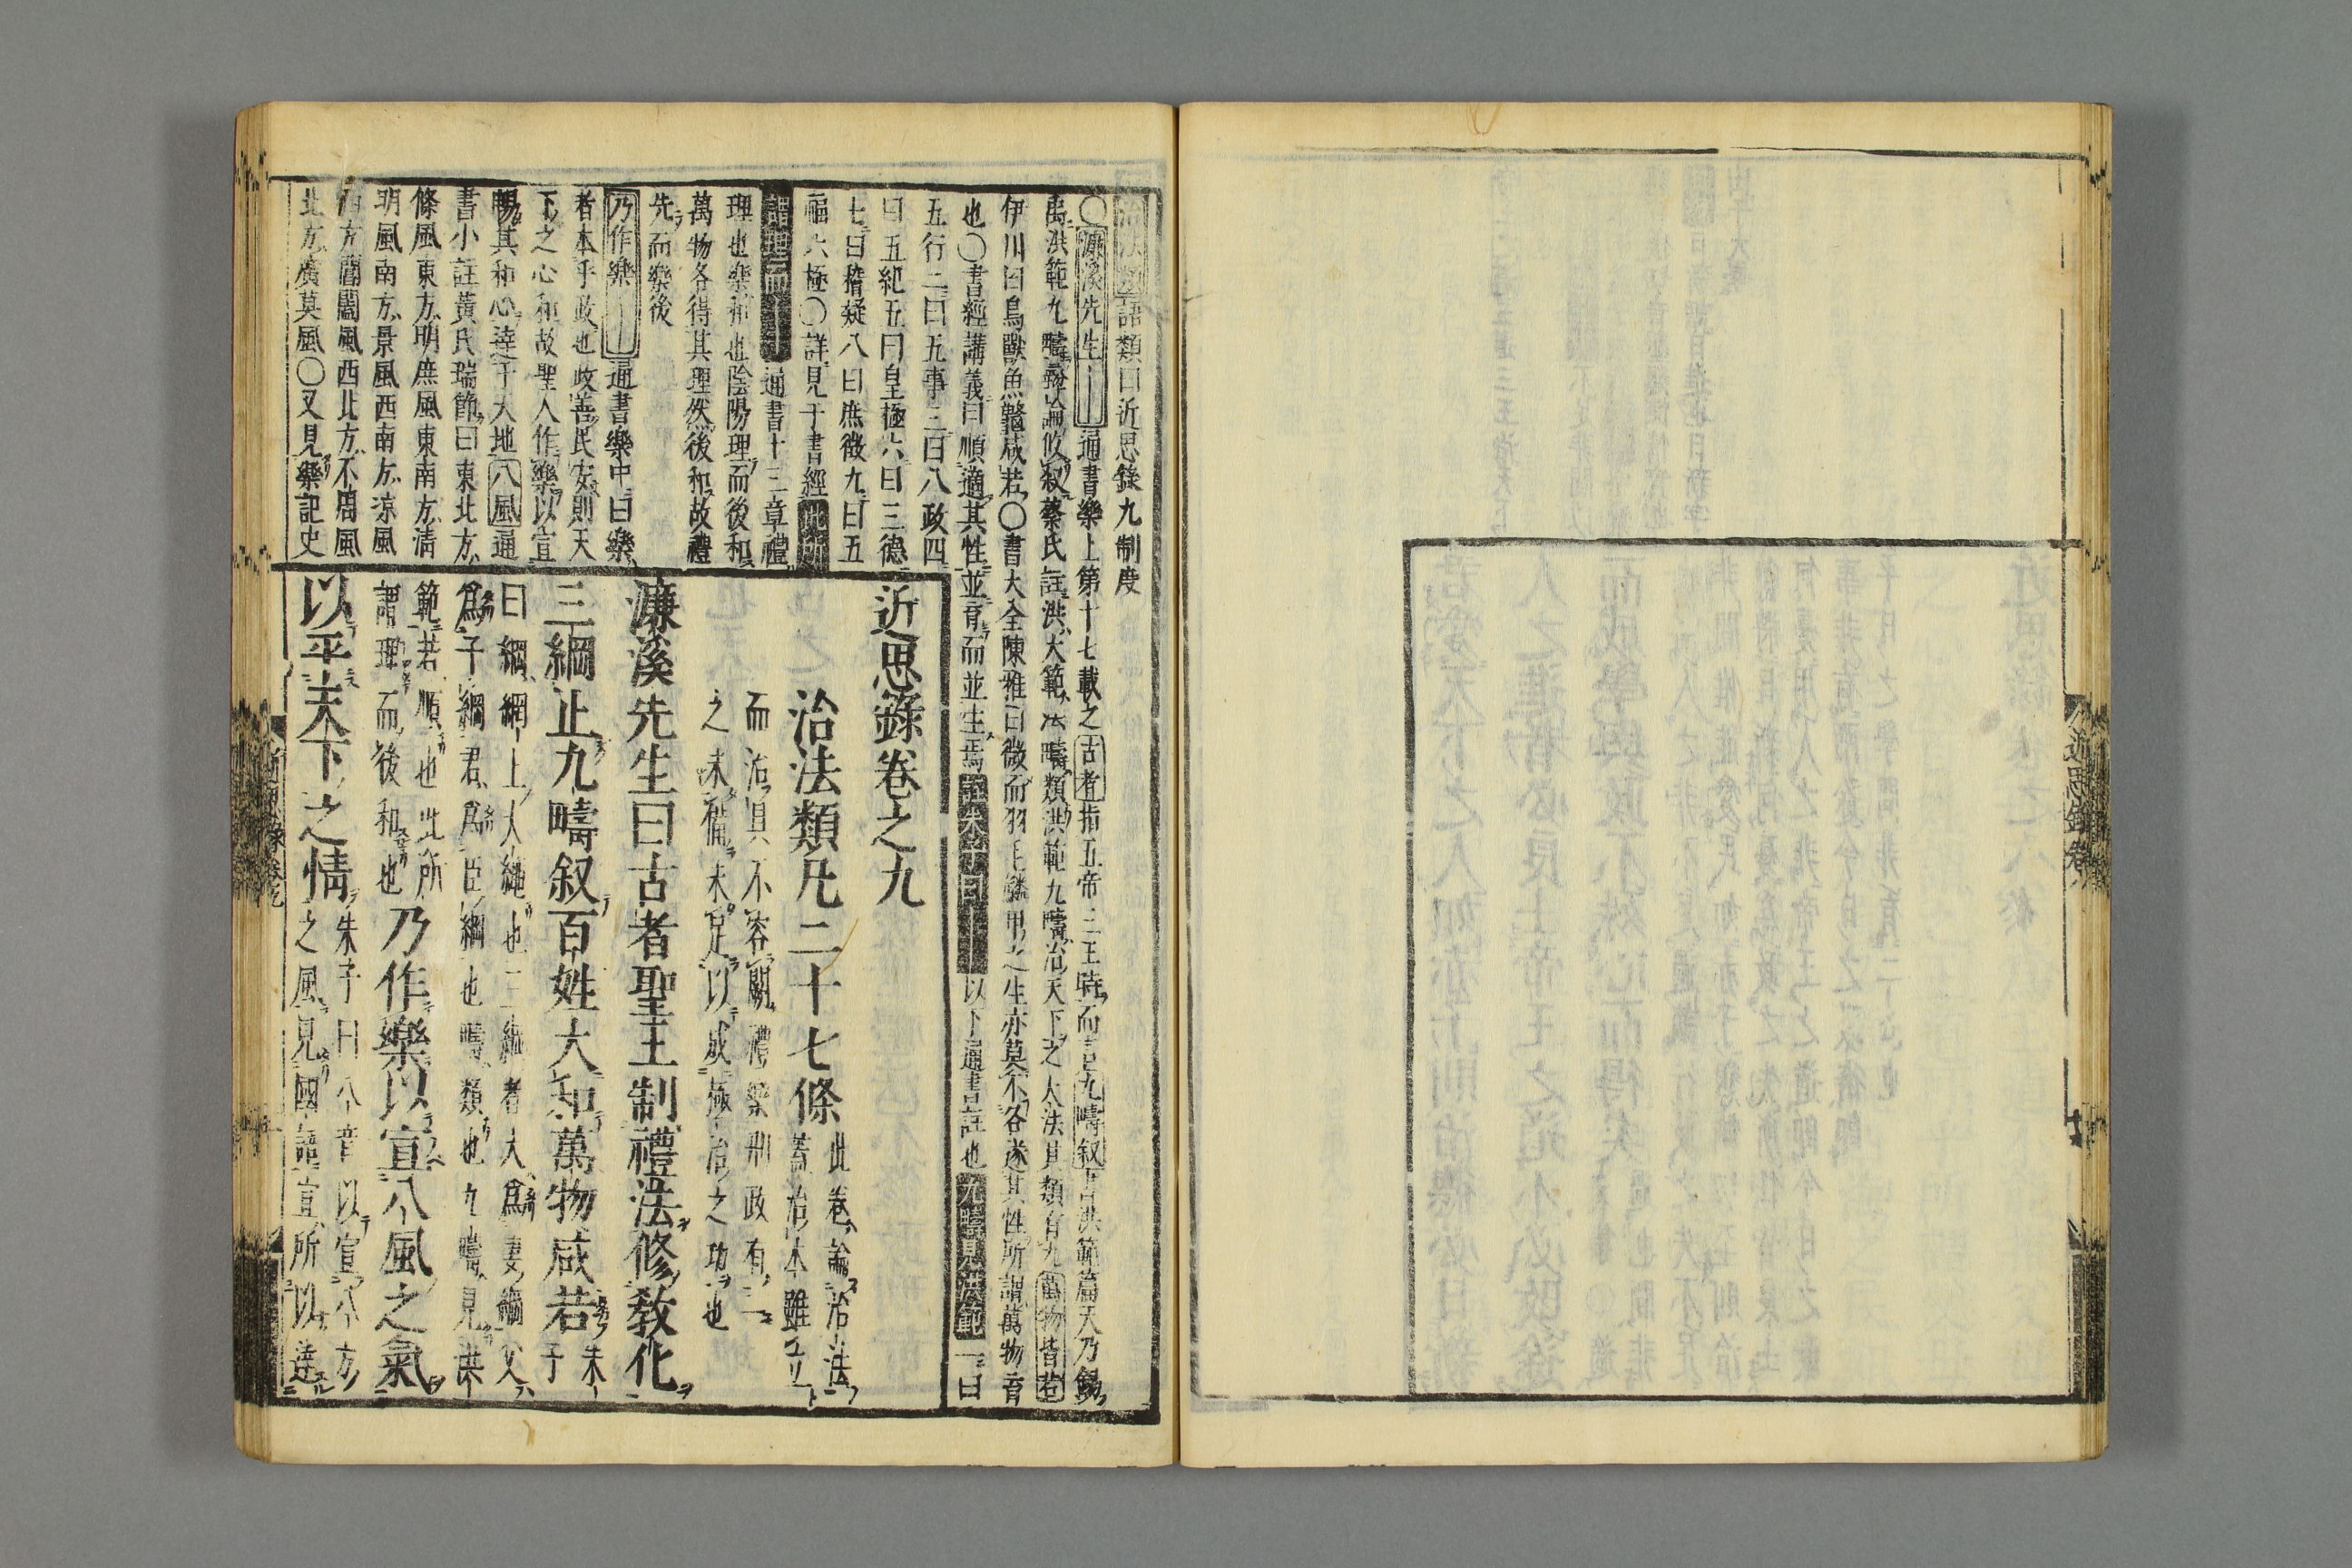 治法類 語類曰近思錄九制度
○濂溪先生 通書樂上第十七載之 古者 指五帝三王時而言 九疇叙 書洪範篇天乃錫
禹洪範九疇彝倫攸叙蔡氏註洪大範法疇類洪範九疇治天下之大法其類有九 萬物皆若
伊川曰鳥獸魚鼈咸若○書大全陳雅曰微而羽毛鱗甲之生亦莫不各遂其性所謂萬物育
也○書經講義曰順適其性並育而並生焉 註朱子曰 以下通書註也 九疇見洪範 一曰
五行二曰五事三曰八政四
曰五紀五曰皇極六曰三德
七曰稽疑八曰庶徵九曰五
福六極○詳見于書經 此所
謂理而 通書十三章禮
理也樂和也陰陽理而後和
萬物各得其理然後和故禮
先而樂後
乃作樂 通書樂中曰樂
者本乎政也政善民安則天
下之心和故聖人作樂以宣
暢其和心達于天地 八風 通
書小註黃氏瑞節曰東北方
條風東方明庶風東南方清
明風南方景風西南方凉風
西方閶闔風西北方不周風
北方廣莫風○又見樂記史
近思錄卷之九
治法類凡二十七條 此卷論治法
蓋治本雖立
而治具不容闕禮樂刑政有一
之未備未足以成極治之功也
濂溪先生曰古者聖王制禮法修教化
三綱正九疇叙百姓大和萬物咸若 朱子
曰綱網上大繩也三綱者夫爲妻綱父
爲子綱君爲臣綱也疇類也九疇見洪
範若順也此所
謂理而後和也 乃作樂以宣八風之氣
以平天下之情 朱子曰八音以宣八方
之風見國語宣所以達
近思錄 卷九
近思錄 卷八